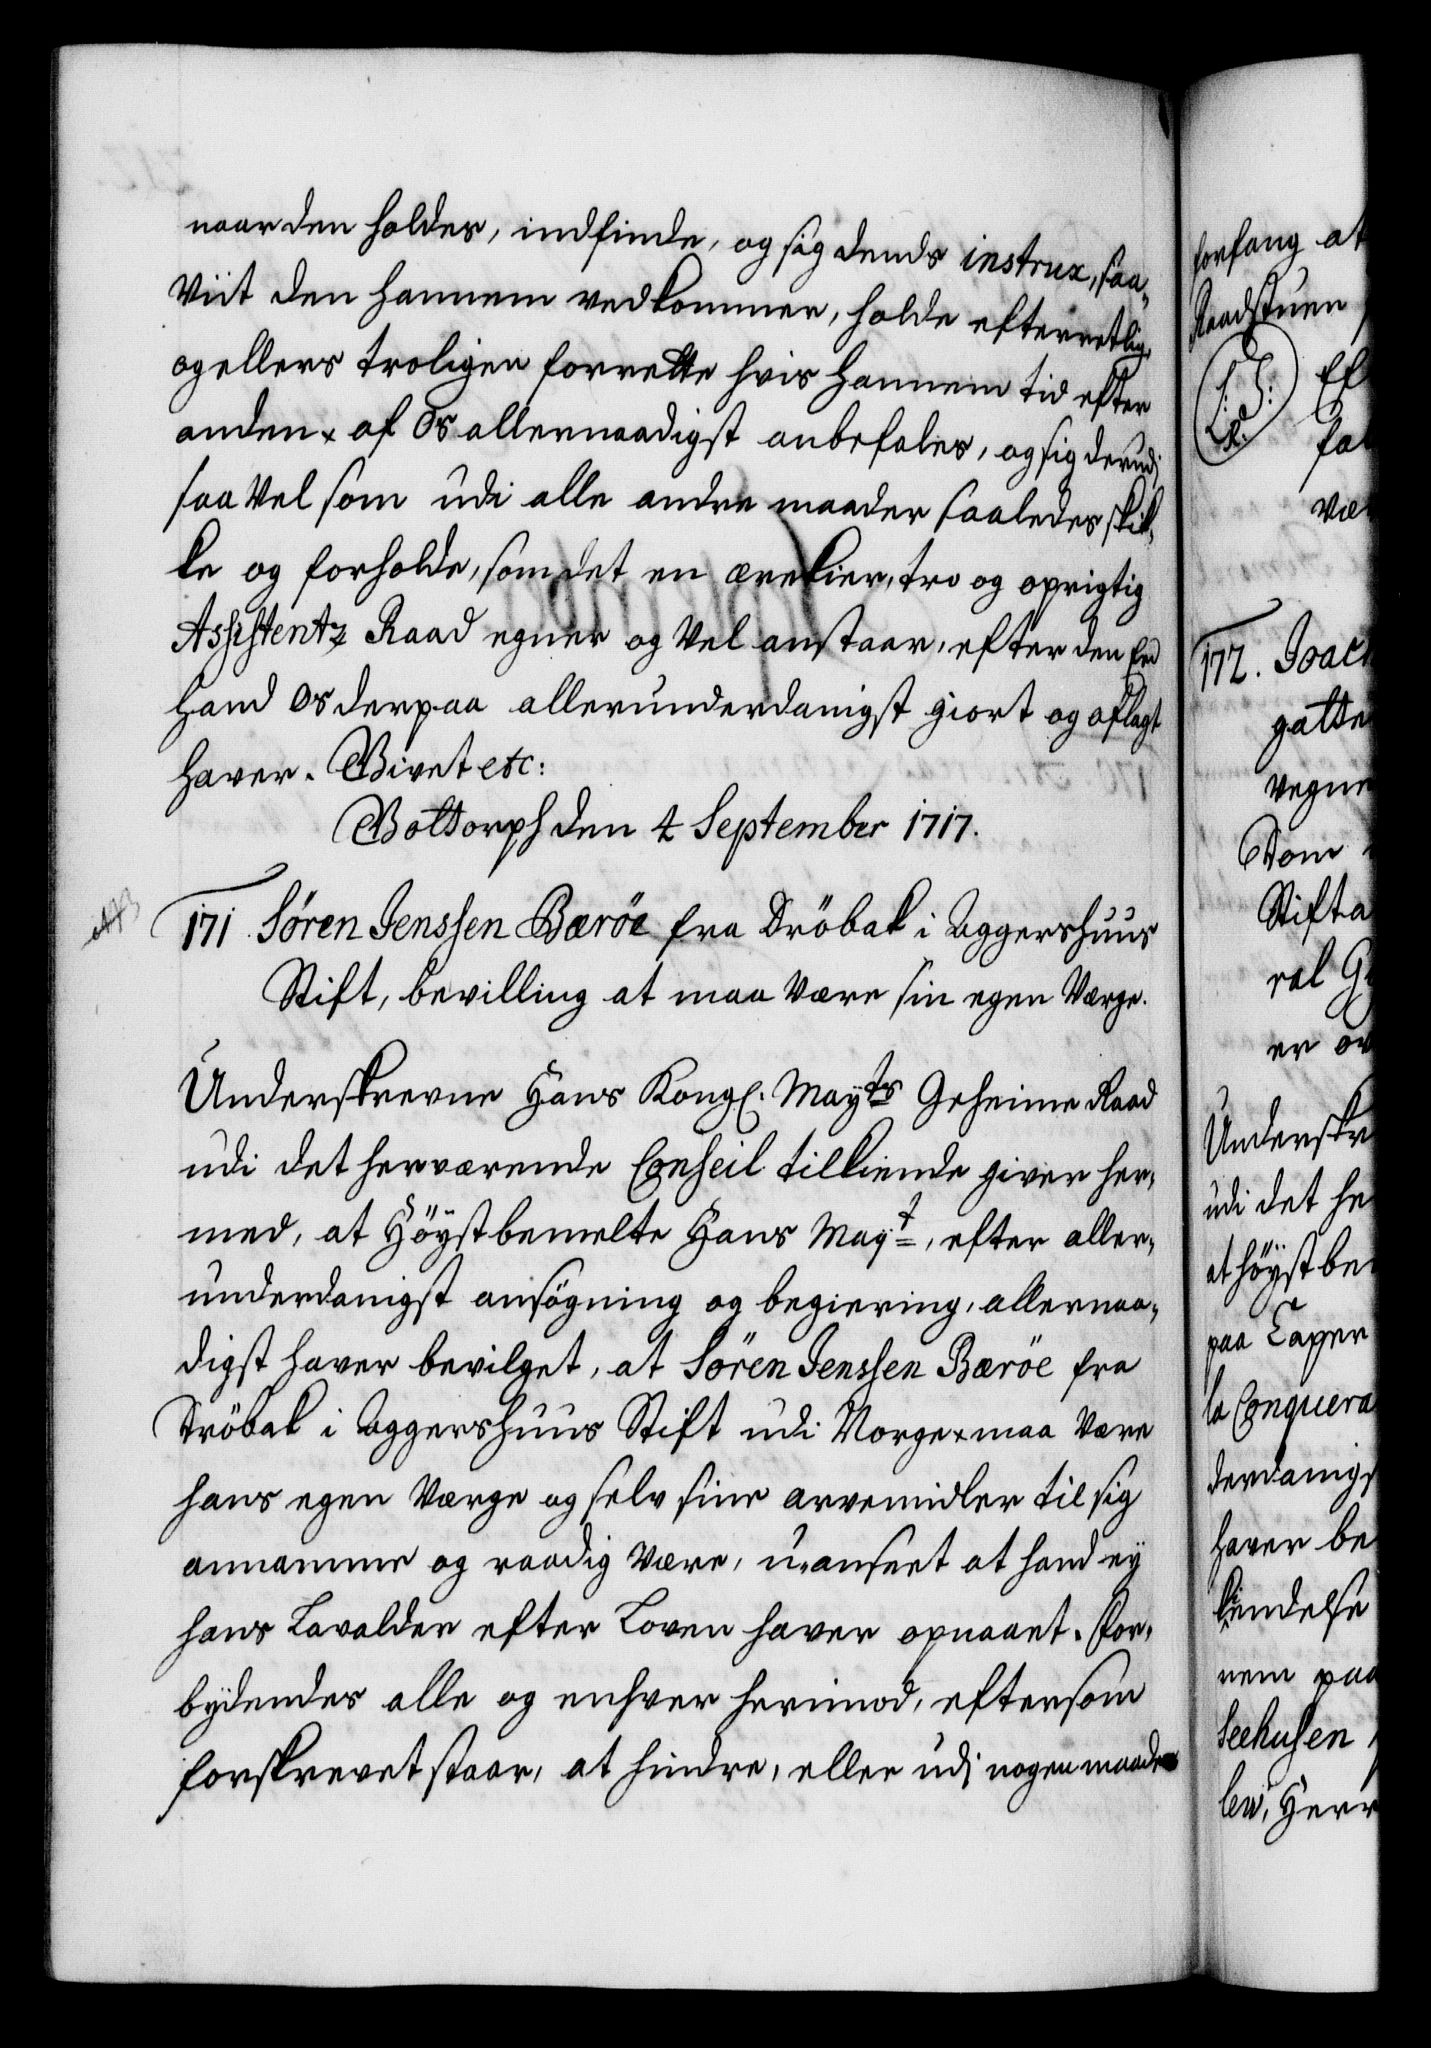 naar den holdes, indfinde, og sig dends instrux, saa„
Viit den hannem vedkommer, holde efterretlig,
og ellers troligen forrette hvis hannem tid efter
anden af Os allernaadigst anbefales, og sig derudj
saa Vel som udi alle andre maader saaledes skik„
ke og forholde, som det en ærekier, tro og oprigtig
Assistentz Raad egner og Vel anstaar, efter den Eed
hand Os derpaa allerunderdanigst giort og aflagt
haver. Givet etc:
Gottorph den 4 September 1717.
171. Sören Jenssen Bærøe fra Dröbak i Aggershuus
Stift, bevilling at maa Være sin egen Værge.
Underskrevne Hans Kongl. Mayts Geheime Raad
udi det herværende Conseil tilkiende giver her„
med, at Höystbemelte Hans Mayt, efter aller„
underdanigst ansögning og begiering, allernaa„
digst haver bevilget, at Sören Jenssen Bærøe fra
Dröbak i Aggershuus Stift udi Norge maa Være
hans egen Værge og selv sine arvemidler til sig
annamme og raadig Være, u-anseet at hand ey
hans Lavalder efter Loven haver opnaaet. For„
bydendes alle og enhver herimod, eftersom
forskrevet staar, at hindre, eller udj nogen maade
forfang at
Raadstuen
172. Joac
gatte
vegne
Dom
Stifta
ral G
er ov
Underskr
udi det he
at höystbe
paa Caper
la Conquera
derdanigs
haver be
kiendelse
nem paa
Seehusen
lew, Herr